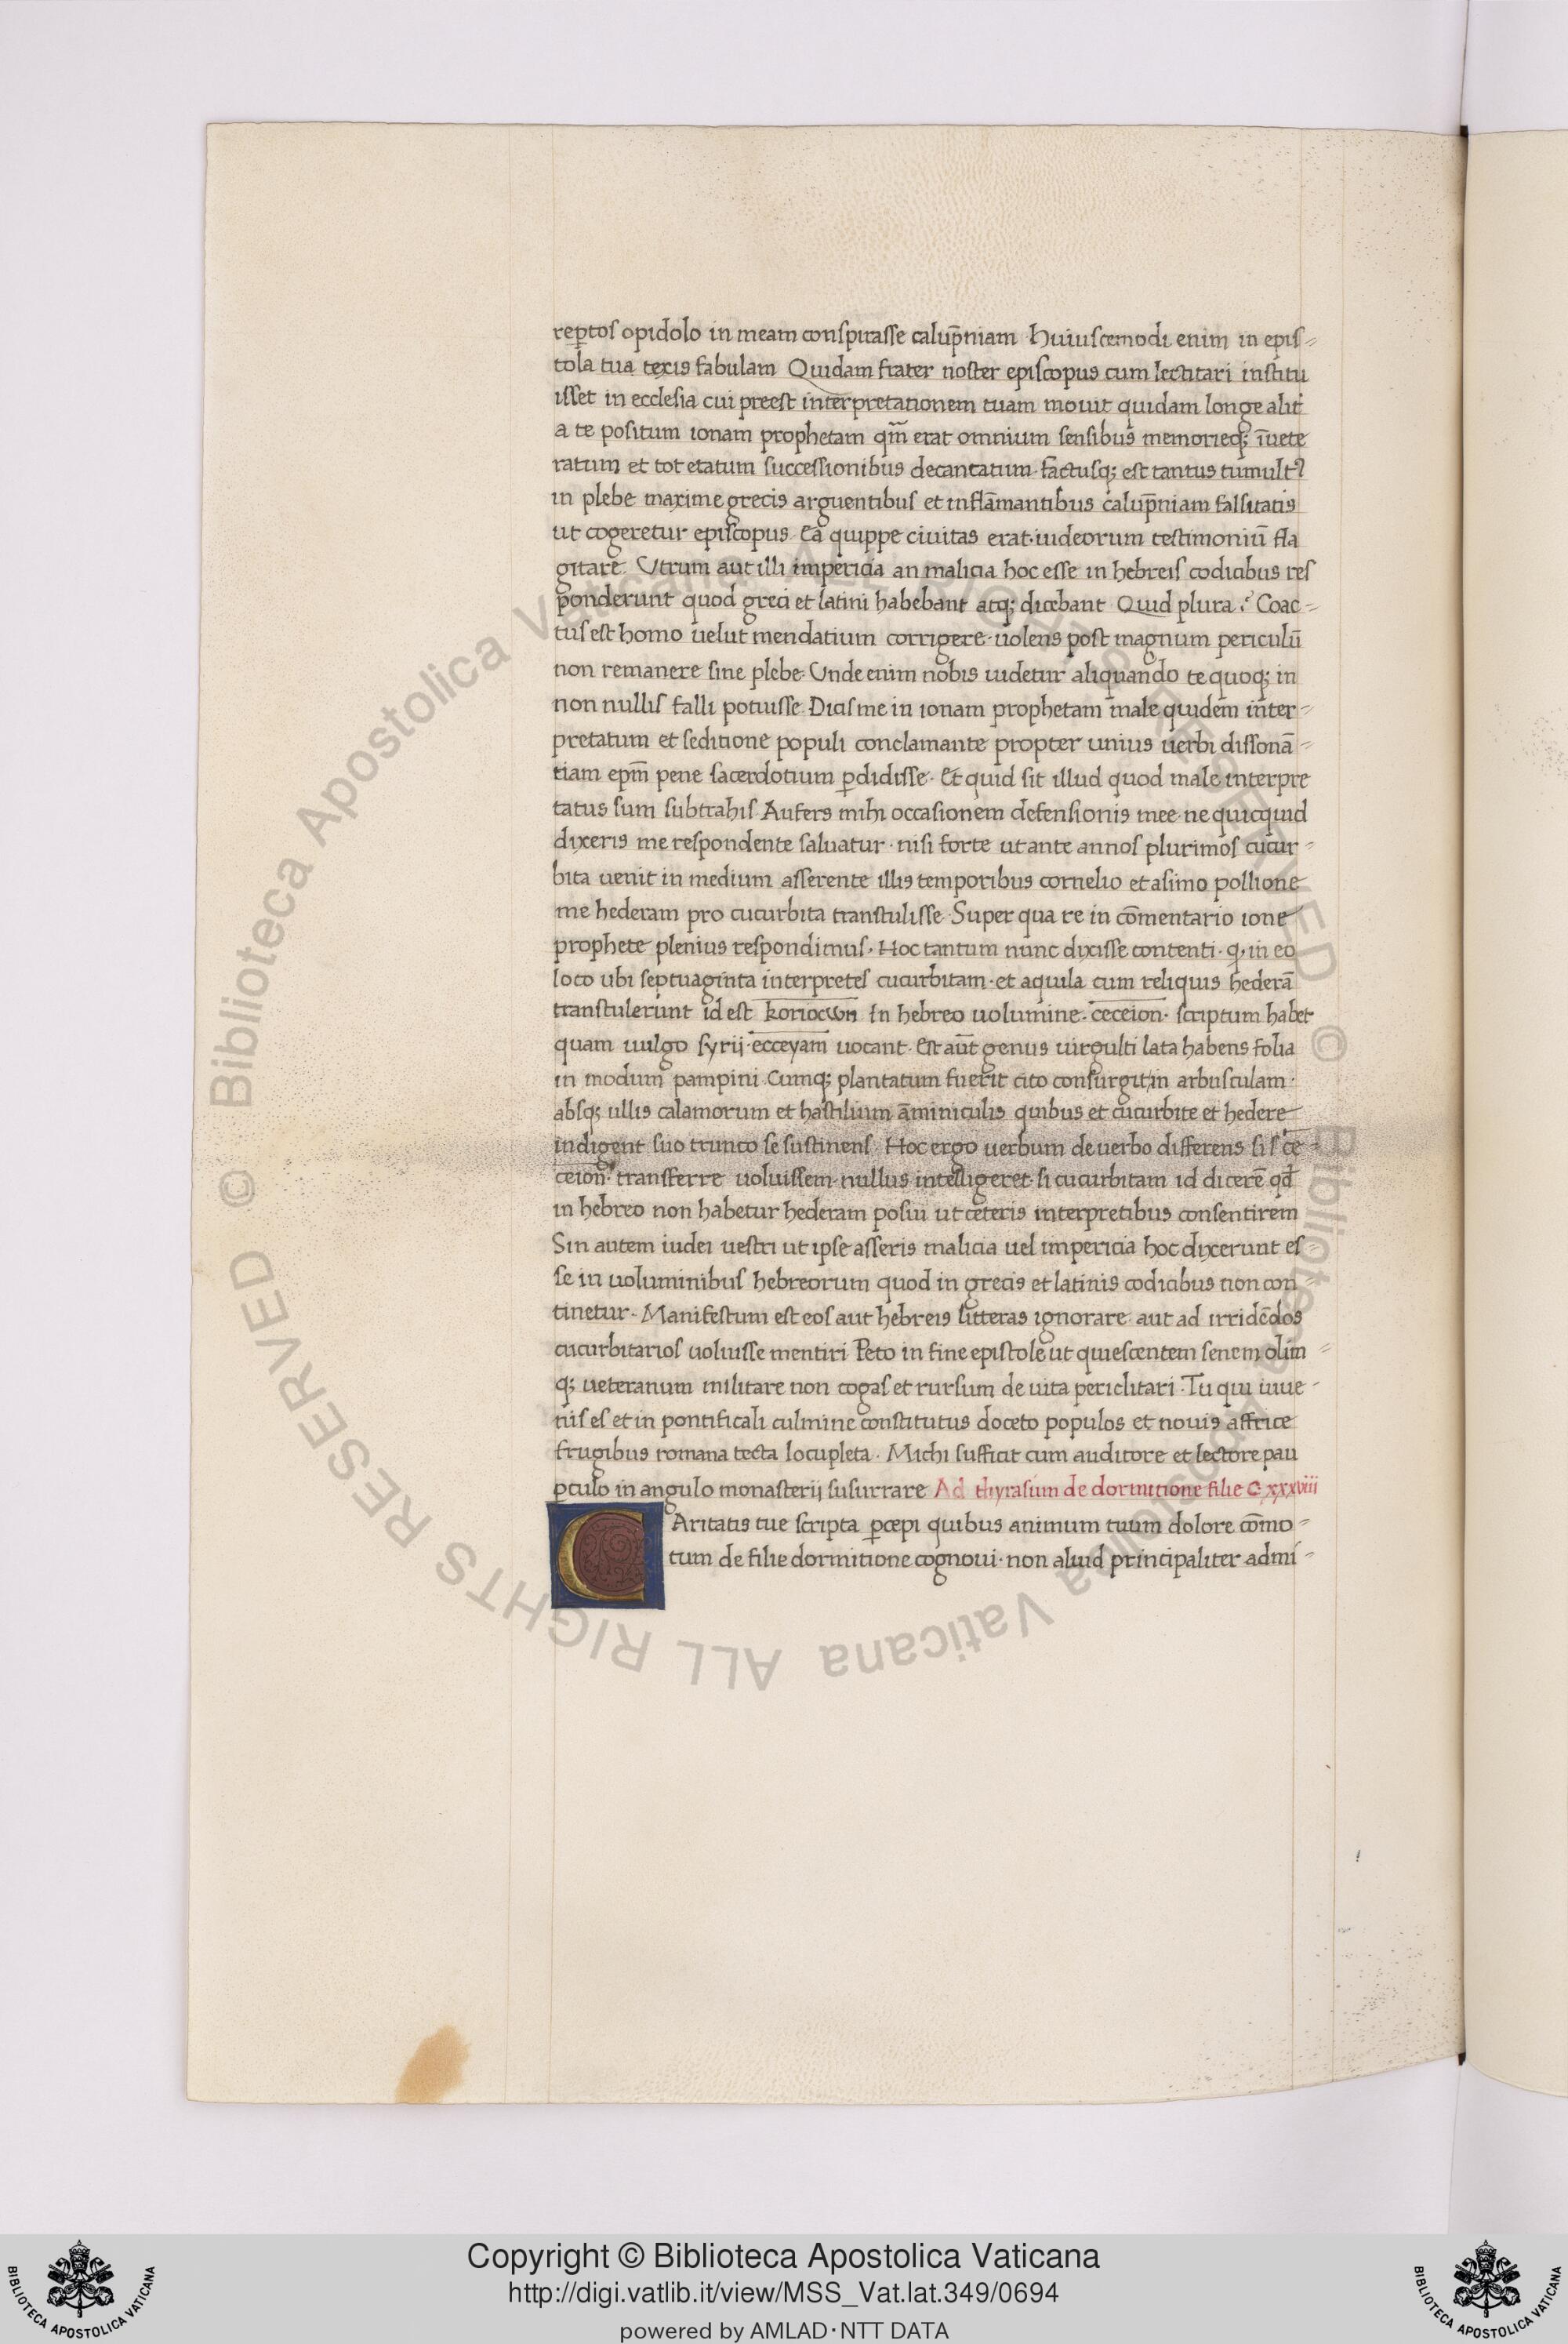 rep̱tos opidolo in meam conspirasse calup̄niam Huiuscemodi enim in epis⸗
tola tua texis fabulam Quidam frater noster episcopus cum lectitari institu
isset in ecclesia cui preest interpretationem tuam mouit quidam longe alit᷑
a te positum ionam prophetam qm̄ erat omnium sensibus memorieqꝫ īuete
ratum et tot etatum successionibus decantatum· factusqꝫ est tantus tumultꝰ
in plebe maxime grecis arguentibus et inflāmantibus calup̄niam falsitatis
ut cogeretur episcopus Ea quippe ciuitas erat·iudeorum testimoniū fla
gitare Utrum aut illi impericia an malicia hoc esse in hebreis codicibus res
ponderunt quod greci et latini habebant atqꝫ dicebant Quid plura? Coac⸗
tus est homo uelut mendatium corrigere·uolens post magnum periculū
non remanere sine plebe Unde enim nobis uidetur aliquando te quoqꝫ in
non nullis falli potuisse Dicis me in ionam prophetam male quidem inter⸗
pretatum et seditione populi conclamante propter unius uerbi dissonā⸗
tiam ep̄m pene sacerdotium ꝑdidisse· Et quid sit illud quod male interpre
tatus sum subtrahis Aufers mihi occasionem defensionis mee·ne quicquid
dixeris me respondente saluatur·nisi forte ut ante annos plurimos cucur⸗
bita uenit in medium asserente illis temporibus cornelio et asimo pollione
me hederam pro cucurbita transtulisse·Super qua re in cōmentario ione
prophete plenius respondimus·Hoc tantum nunc dixisse contenti·ꝙ in eo
loco ubi septuaginta interpretes cucurbitam·et aquila cum reliquis hederā
transtulerunt id est koriocωn In hebreo uolumine·ceceion·scriptum habet
quam uulgo syrij·ecceyam uocant·Est aūt genus uirgulti lata habens folia
in modum pampini Cumqꝫ plantatum fuerit cito consurgit in arbusculam·
absqꝫ ullis calamorum et hastilium āminiculis quibus et cucurbite et hedere
indigent suo trunco se sustinens Hoc ergo uerbum de uerbo differens si s ce⸗
ceion·transferre uoluissem·nullus intelligeret·si cucurbitam id dicerē qd̄
in hebreo non habetur hederam posui ut ceteris interpretibus consentirem
Sin autem iudei uestri ut ipse asseris malicia uel impericia hoc dixerunt es⸗
se in uoluminibus hebreorum quod in grecis et latinis codicibus non con⸗
tinetur·Manifestum est eos aut hebreis litteras ignorare·aut ad irridēdos
cucurbitarios uoluisse mentiri Peto in fine epistole ut quiescentem senem olim⸗
qꝫ ueteranum militare non cogas et rursum de uita periclitari·Tu qui iuue⸗
nis es et in pontificali culmine constitutus doceto populos et nouis affrice
frugibus romana tecta locupleta·Michi sufficit cum auditore et lectore pau
ꝑculo in angulo monasterij susurrare Ad thyrasum de dormitione filie C xxxviii
CAritatis tue scripta ꝑcepi quibus animum tuum dolore cōmo⸗
tum de filie dormitione cognoui·non aliud principaliter admi⸗
Copyright © Biblioteca Apostolica Vaticana
http://digi.vatlib.it/view/MSS_Vat.lat.349/0694
powered by AMLAD·NTT DATA
BIBLIOTECA APOSTOLICA VATICANA
BIBLIOTECA APOSTOLICA VATICANA
© Biblioteca Apostolica Vaticana ALL RIGHTS RESERVED
© Biblioteca Apostolica Vaticana ALL RIGHTS RESERVED